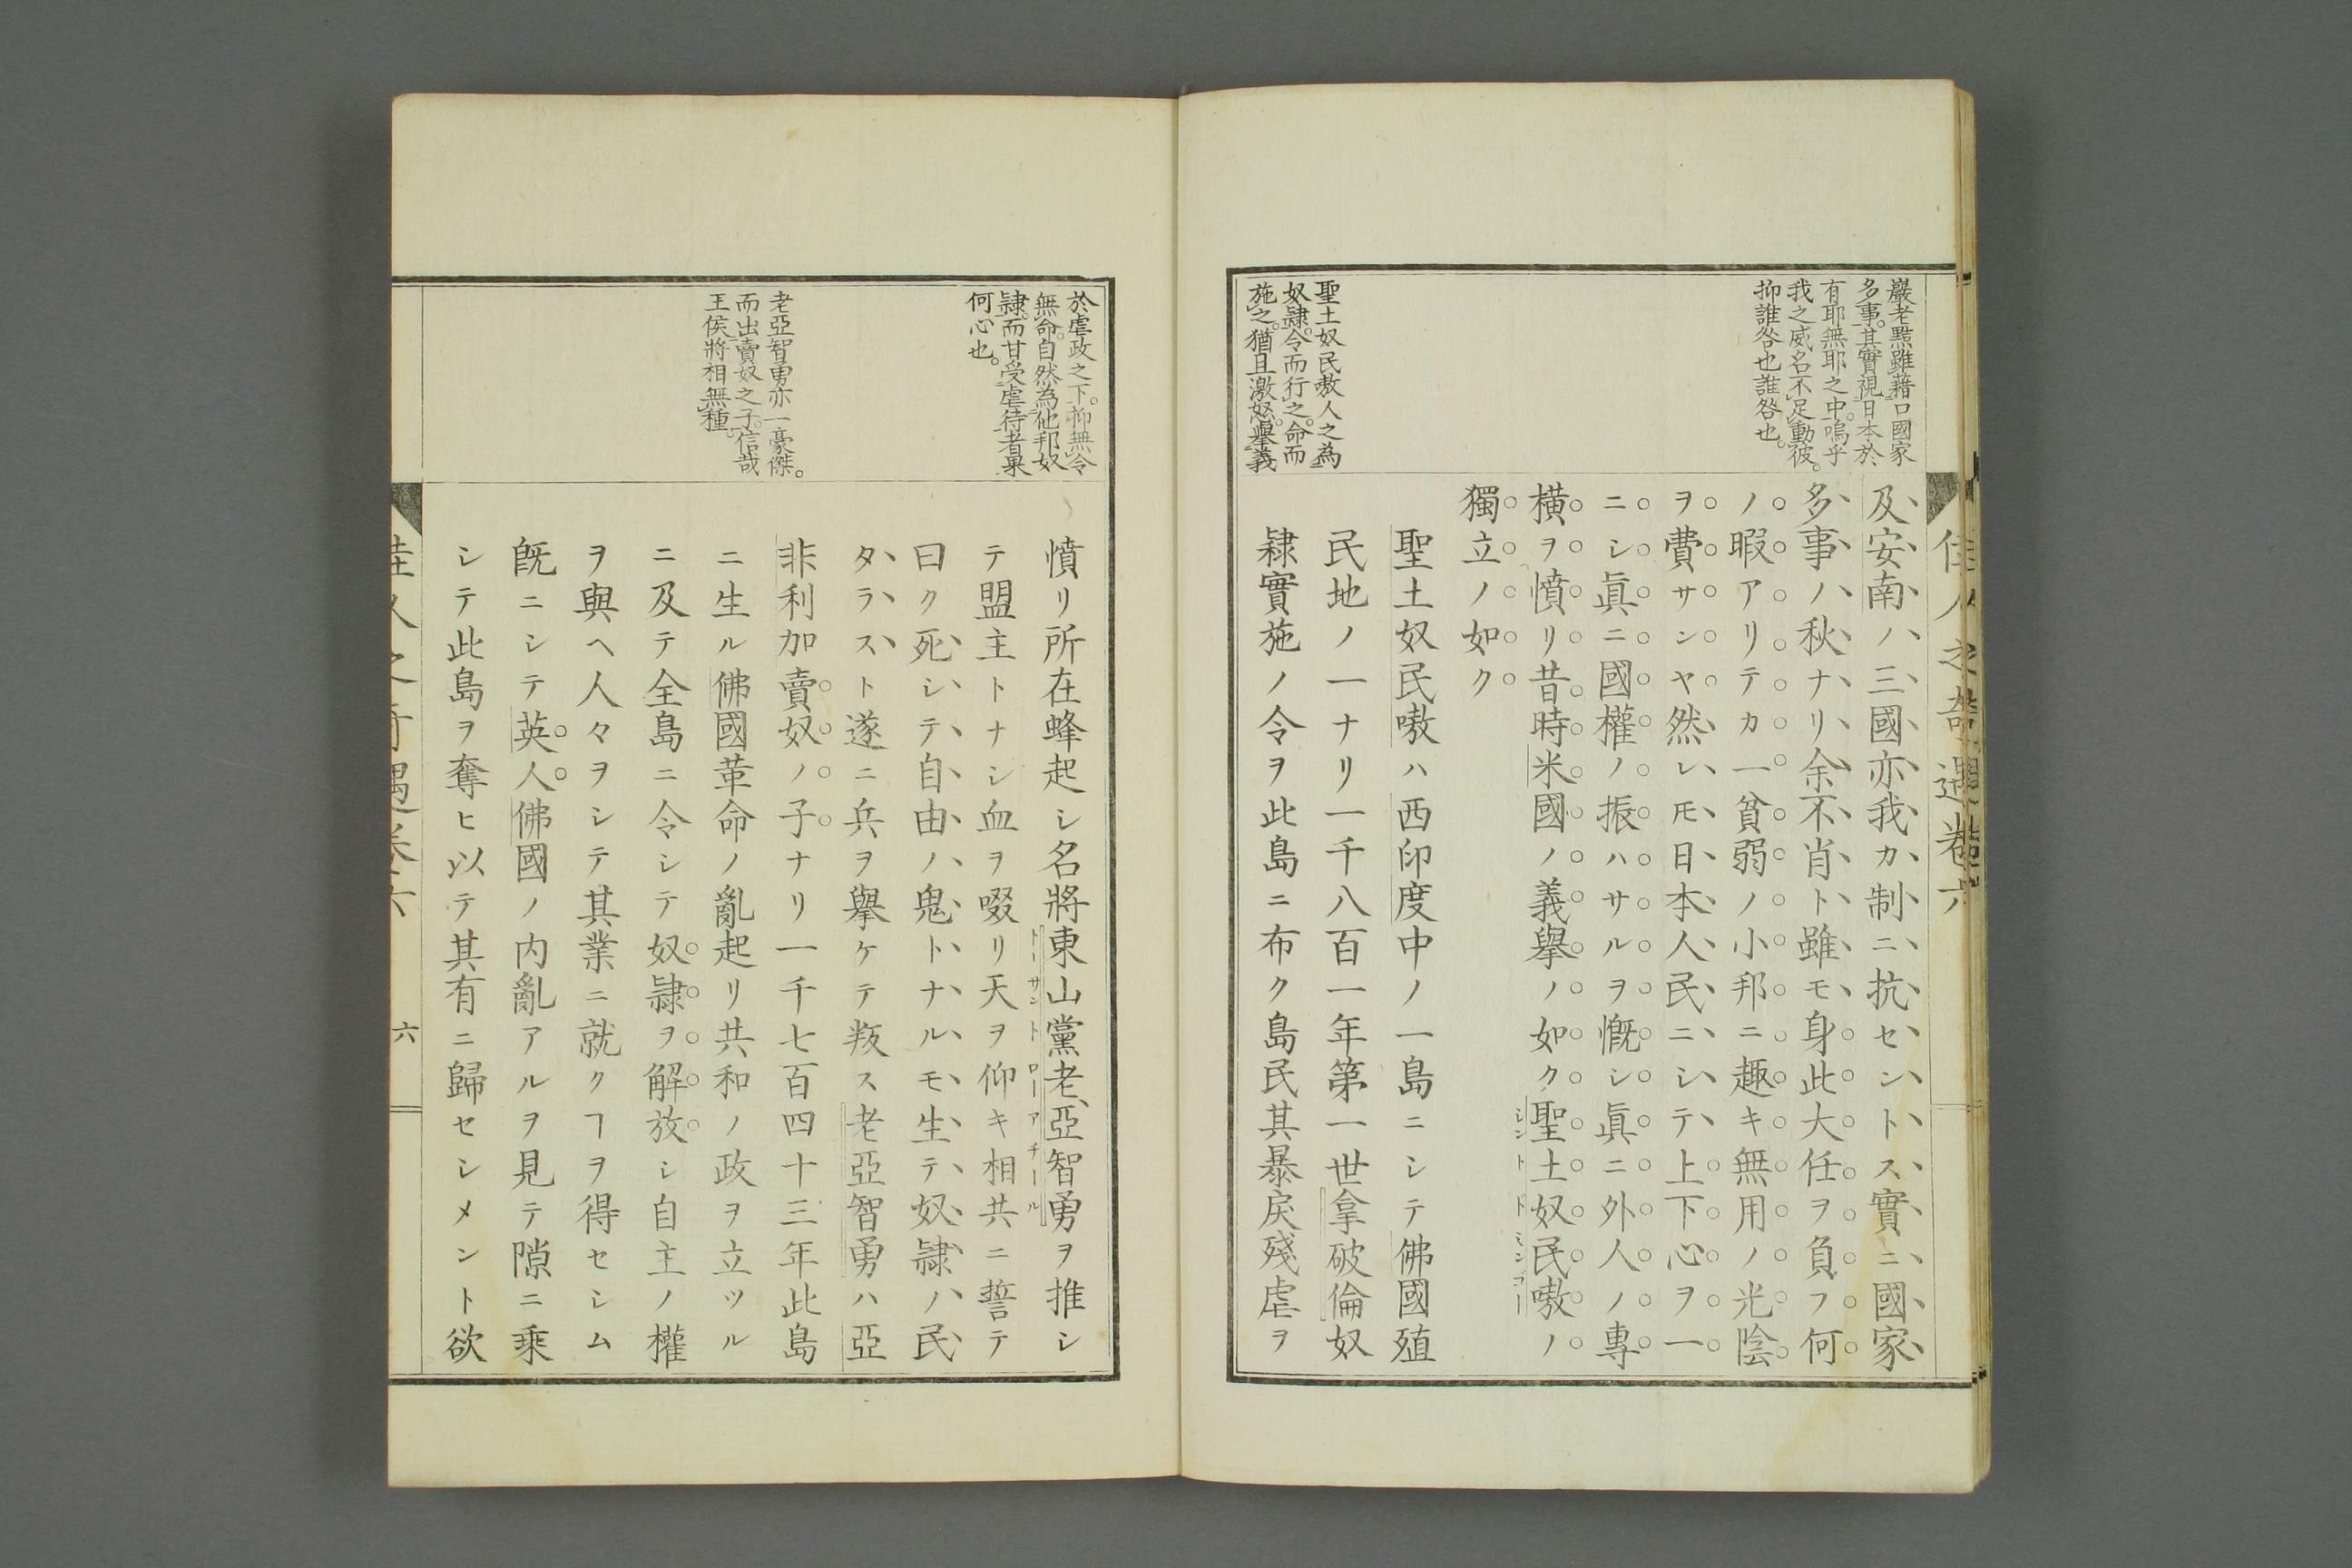 佳人之奇遇卷六
巖老黠雖藉口國家
多事。其實視日本於
有耶無耶之中。嗚乎
我之威名不足動彼。
抑誰咎也誰咎也。
及安南ノ三國亦我カ制ニ抗セントス實ニ國家
多事ノ秋ナリ余不肖ト雖モ身此大任ヲ負フ何
ノ暇アリテカ一貧弱ノ小邦ニ趣キ無用ノ光陰
ヲ費サンヤ然レ𪜈日本人民ニシテ上下心ヲ一
ニシ眞ニ國權ノ振ハサルヲ慨シ眞ニ外人ノ專
橫ヲ憤リ昔時米國ノ義擧ノ如ク聖土奴民嗷ノ
シント ドミンゴー
獨立ノ如ク
聖土奴民嗷人之為
奴隷。令而行之。命而
施之。猶且激怒。擧義
聖土奴民嗷ハ西印度中ノ一島ニシテ佛國殖
民地ノ一ナリ一千八百一年第一世拿破倫奴
隷實施ノ令ヲ此島ニ布ク島民其暴戾殘虐ヲ
於虐政之下。抑無令
無命。自然為他邦奴
隷。而甘受虐待者果
何心也。
憤リ所在蜂起シ名將東山黨老亞智勇ヲ推シ
トーサント ローアチール
テ盟主トナシ血ヲ啜リ天ヲ仰キ相共ニ誓テ
曰ク死シテ自由ノ鬼トナルモ生テ奴隷ノ民
タラスト遂ニ兵ヲ擧ケテ叛ス老亞智勇ハ亞
老亞智勇亦一豪傑。
而出賣奴之子。信哉
王侯將相無種。
非利加賣奴ノ子ナリ一千七百四十三年此島
ニ生ル佛國革命ノ亂起リ共和ノ政ヲ立ツル
ニ及テ全島ニ令シテ奴隷ヲ解放シ自主ノ權
ヲ與ヘ人々ヲシテ其業ニ就クヿヲ得セシム
旣ニシテ英人佛國ノ内亂アルヲ見テ隙ニ乘
シテ此島ヲ奪ヒ以テ其有ニ歸セシメント欲
佳人之奇遇卷六
六